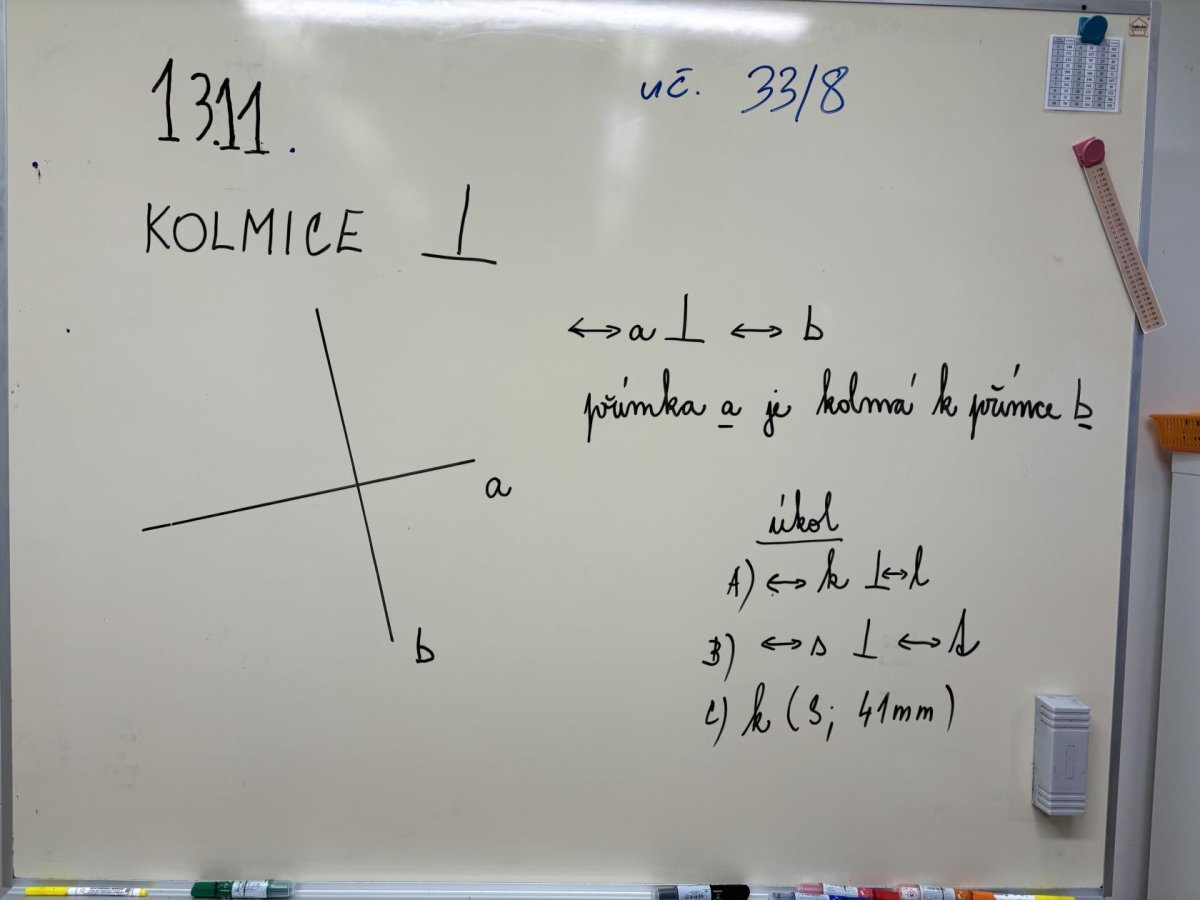 13.11.
uč. 33/8
KOLMICE ⊥
↔ a ⊥ ↔ b
přímka a je kolmá k přímce b
a
b
úkol
A) ↔ k ⊥ ↔ l
B) ↔ s ⊥ ↔ t
C) k (S; 41mm)